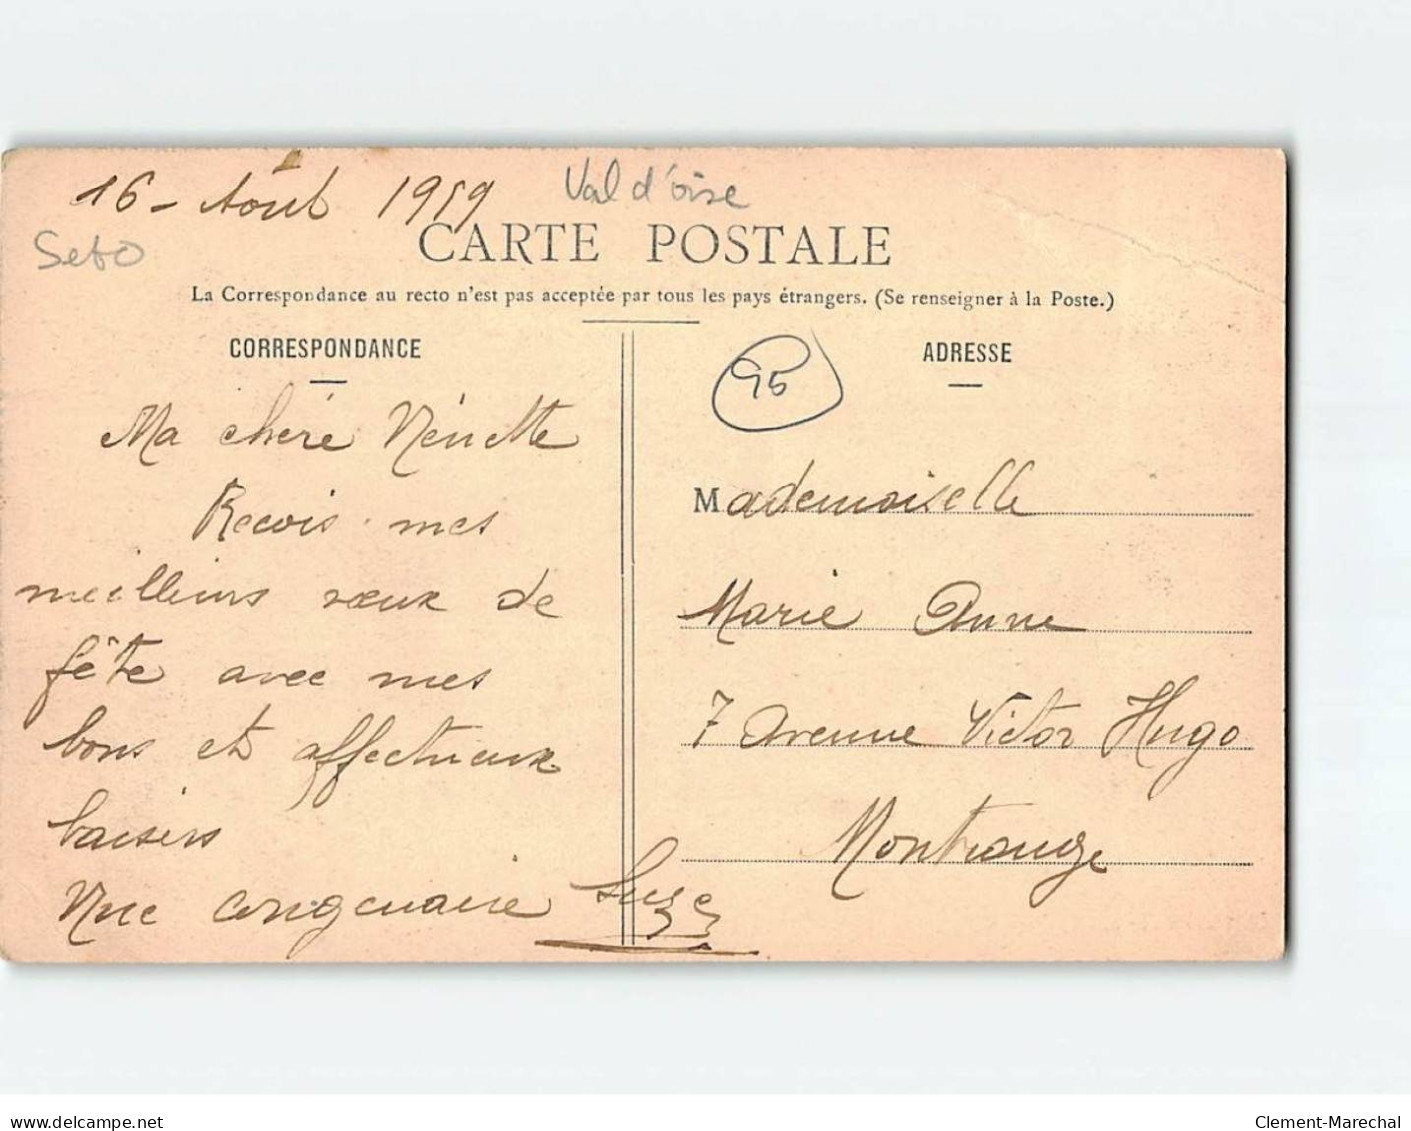 16 - Août 1919
Val d'oise
CARTE POSTALE
La Correspondance au recto n'est pas acceptée par tous les pays étrangers. (Se renseigner à la Poste.)
CORRESPONDANCE
ADRESSE
95
Ma chère Nénette
Recois mes
meilleurs vœux de
fête avec mes
bons et affectueux
baisers
Une
Suze
Mademoiselle
Marie Anne
7 Avenue Victor Hugo
Montrouge
www.delcampe.net
Clement-Marechal